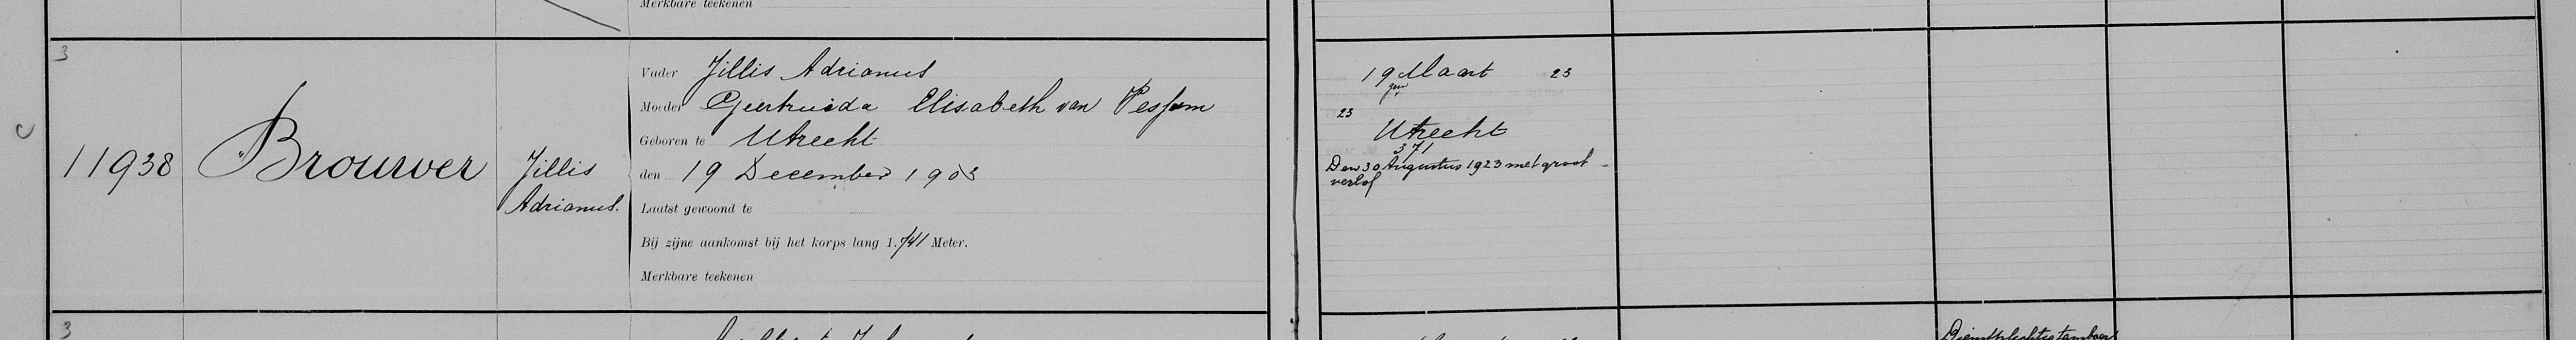 Merkbare teekenen
3
11938
Brouwer
Jillis
Adrianus.
Vader Jillis Adrianus
Moeder Geertruida Elisabeth van Pessum
Geboren te Utrecht
den 19 December 1903
Laatst gewoond te
Bij zijne aankomst bij het korps lang 1.741 Meter.
Merkbare teekenen
C
19 Maart 23
23
Utrecht
371
Den 30 Augustus 1923 met groot
verlof
3